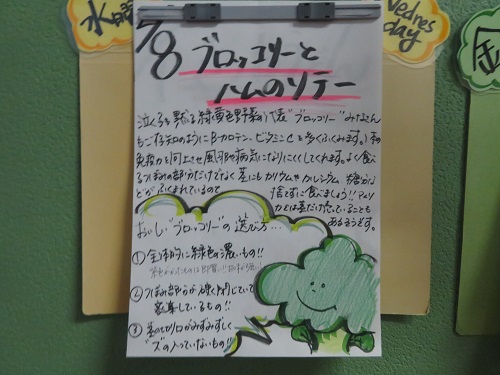 水曜
Wednesday
金
7/8 ブロッコリーと
ハムのソテー
泣く子も黙る緑黄色野菜の代表"ブロッコリー"みなさん
もご存知のようにβ-カロテン、ビタミンCを多くふくみます。
免疫力を向上させ風邪や病気になりにくくしてくれます。よく食べ
るつぼみの部分だけでなく茎にもカリウムやカルシウム、糖分な
どがふくまれているので
捨てずに食べましょう!!アメリ
カでは茎だけ売っていることも
あるそうです。
おいしい"ブロッコリー"の選び方…
①全体的に緑色の濃いもの!!
②つぼみ部分が硬く閉じていて
密集しているもの!!
③茎の切り口がみずみずしく
"ス"の入っていないもの!!